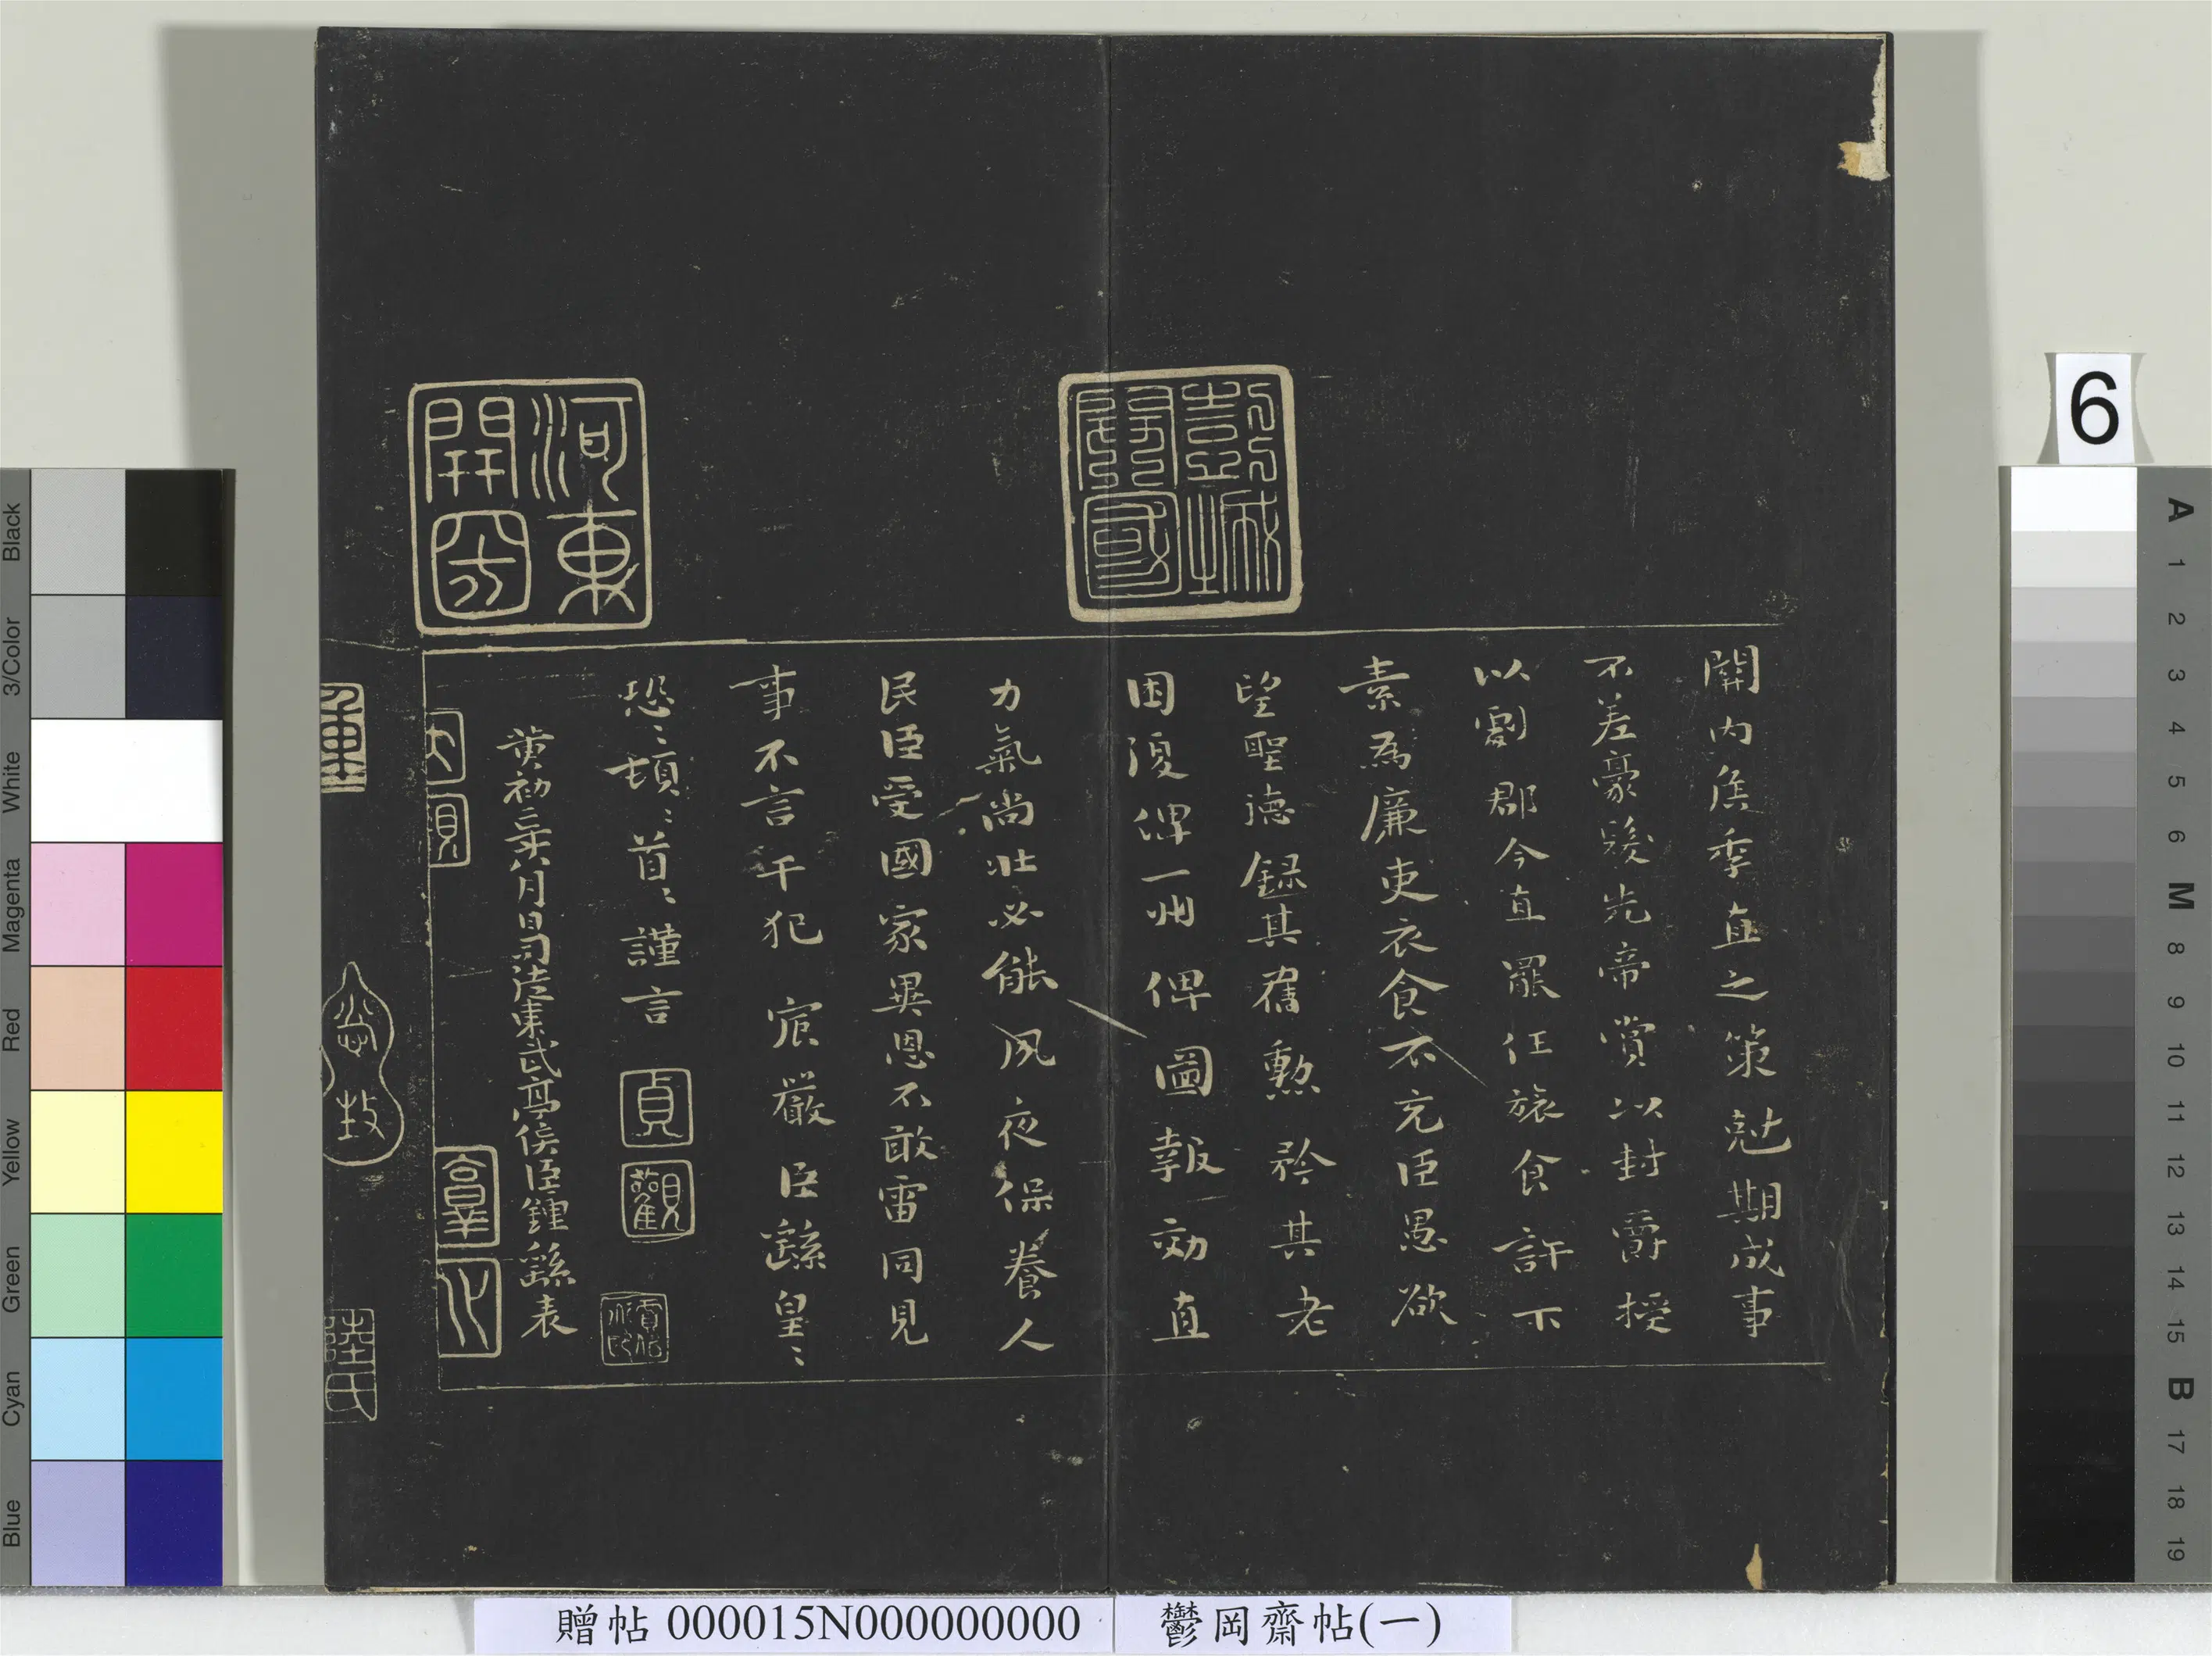 關內侯季直之策剋期成事
不差豪髮先帝賞以封爵授
以劇郡今直罷任旅食許下
素爲廉吏衣食不充臣愚欲
望聖德錄其舊勳矜其老
困復俾一州俾圖報効直
力氣尚壯必能夙夜保養人
民臣受國家異恩不敢雷同見
事不言干犯宸嚴臣繇皇〻
恐〻頓〻首〻謹言
黃初二年八月日司徒東武亭侯臣鍾繇表
彭城開國
河東開國
貞觀
陸氏
6
贈帖 000015N000000000
鬱岡齋帖(一)
Black
3/Color
White
Magenta
Red
Yellow
Green
Cyan
Blue
A
1
2
3
4
5
6
M
8
9
10
11
12
13
14
15
B
17
18
19